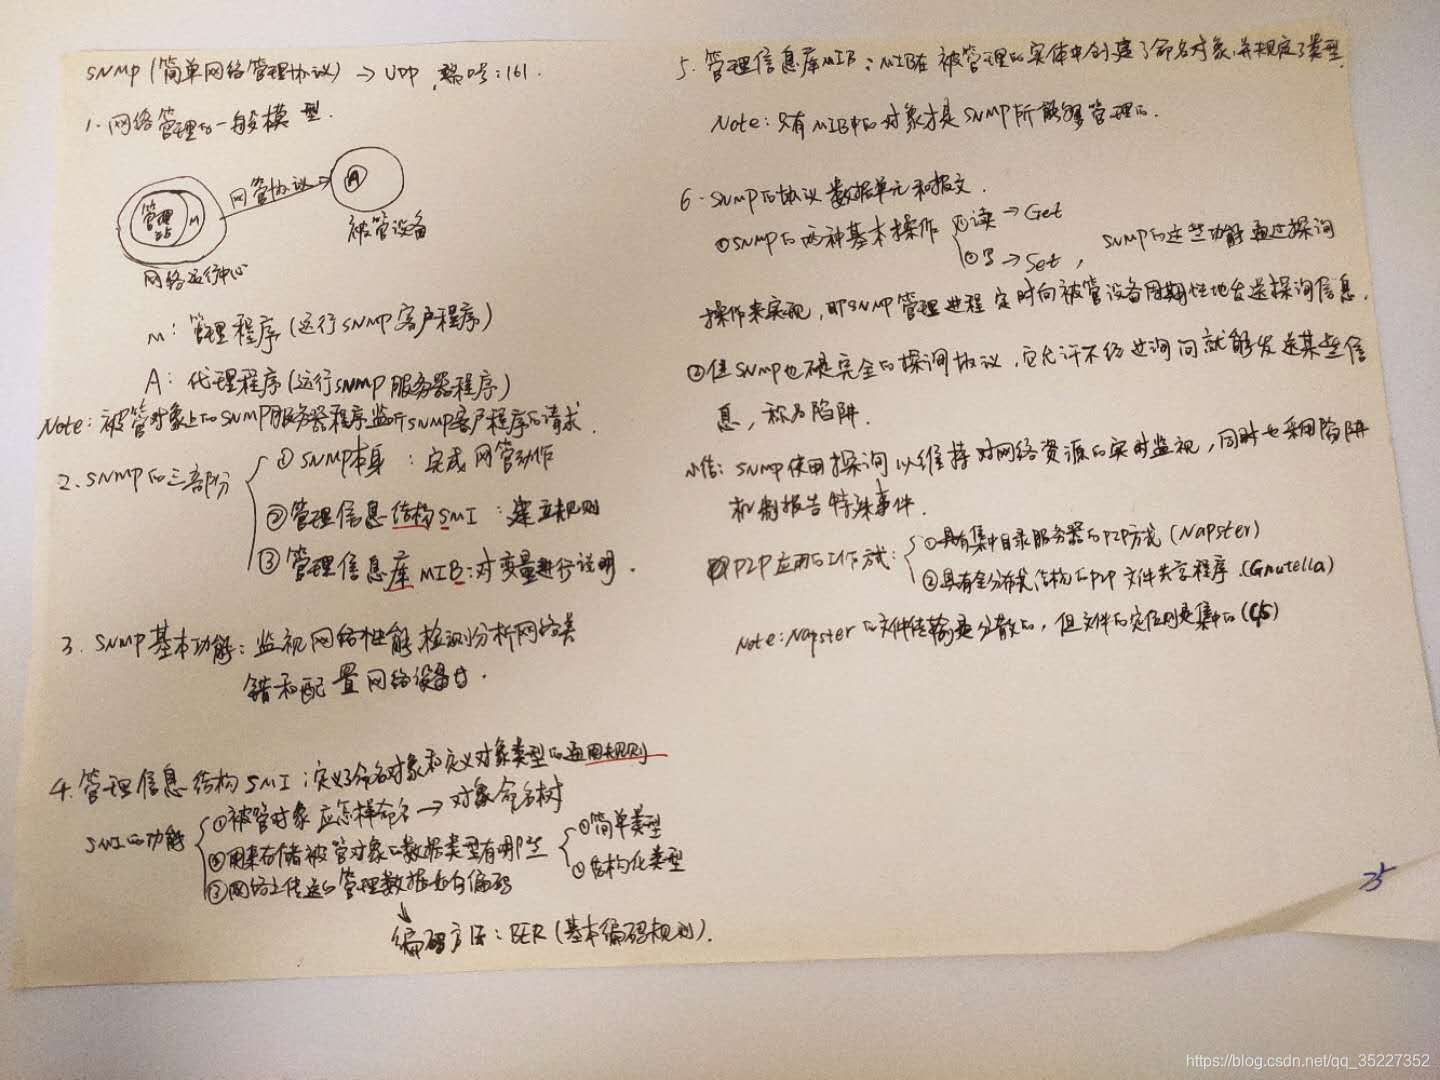 SNMP(简单网络管理协议) → UDP,端口号:161.
1.网络管理的一般模型.
管理站 M
网管协议
A
被管设备
网络运行中心
M:管理程序(运行SNMP客户程序)
A:代理程序(运行SNMP服务器程序)
Note:被管对象上的SNMP服务器程序监听SNMP客户程序的请求.
2.SNMP的三部分
①SNMP本身:完成网管动作
②管理信息结构SMI:建立规则
③管理信息库MIB:对变量进行说明.
3.SNMP基本功能:监视网络性能,检测分析网络差
错和配置网络设备.
4.管理信息结构SMI:定义了命名对象和定义对象类型的通用规则
SMI的功能
①被管对象应怎样命名 → 对象命名树
②用来存储被管对象的数据类型有哪些
①简单类型
②结构化类型
③网络上传送的管理数据如何编码
编码方法:BER(基本编码规则).
5.管理信息库MIB:MIB在被管理的实体中创建了命名对象,并规定了类型.
Note:只有MIB中的对象才是SNMP所能够管理的.
6.SNMP的协议数据单元和报文.
①SNMP的两种基本操作
①读 → Get
②写 → Set, SNMP的这些功能通过探询
操作来实现,即SNMP管理进程定时向被管设备周期性地发送探询信息.
②但SNMP也不是完全的探询协议,它允许不经过询问就能发送某些信
息,称为陷阱.
小结:SNMP使用探询以维持对网络资源的实时监视,同时也采用陷阱
机制报告特殊事件.
P2P应用的工作方式:
①具有集中目录服务器的P2P方式(Napster)
②具有全分布式结构的P2P文件共享程序.(Gnutella)
Note:Napster的文件传输是分散的,但文件的定位则是集中的(CS)
35
https://blog.csdn.net/qq_35227352